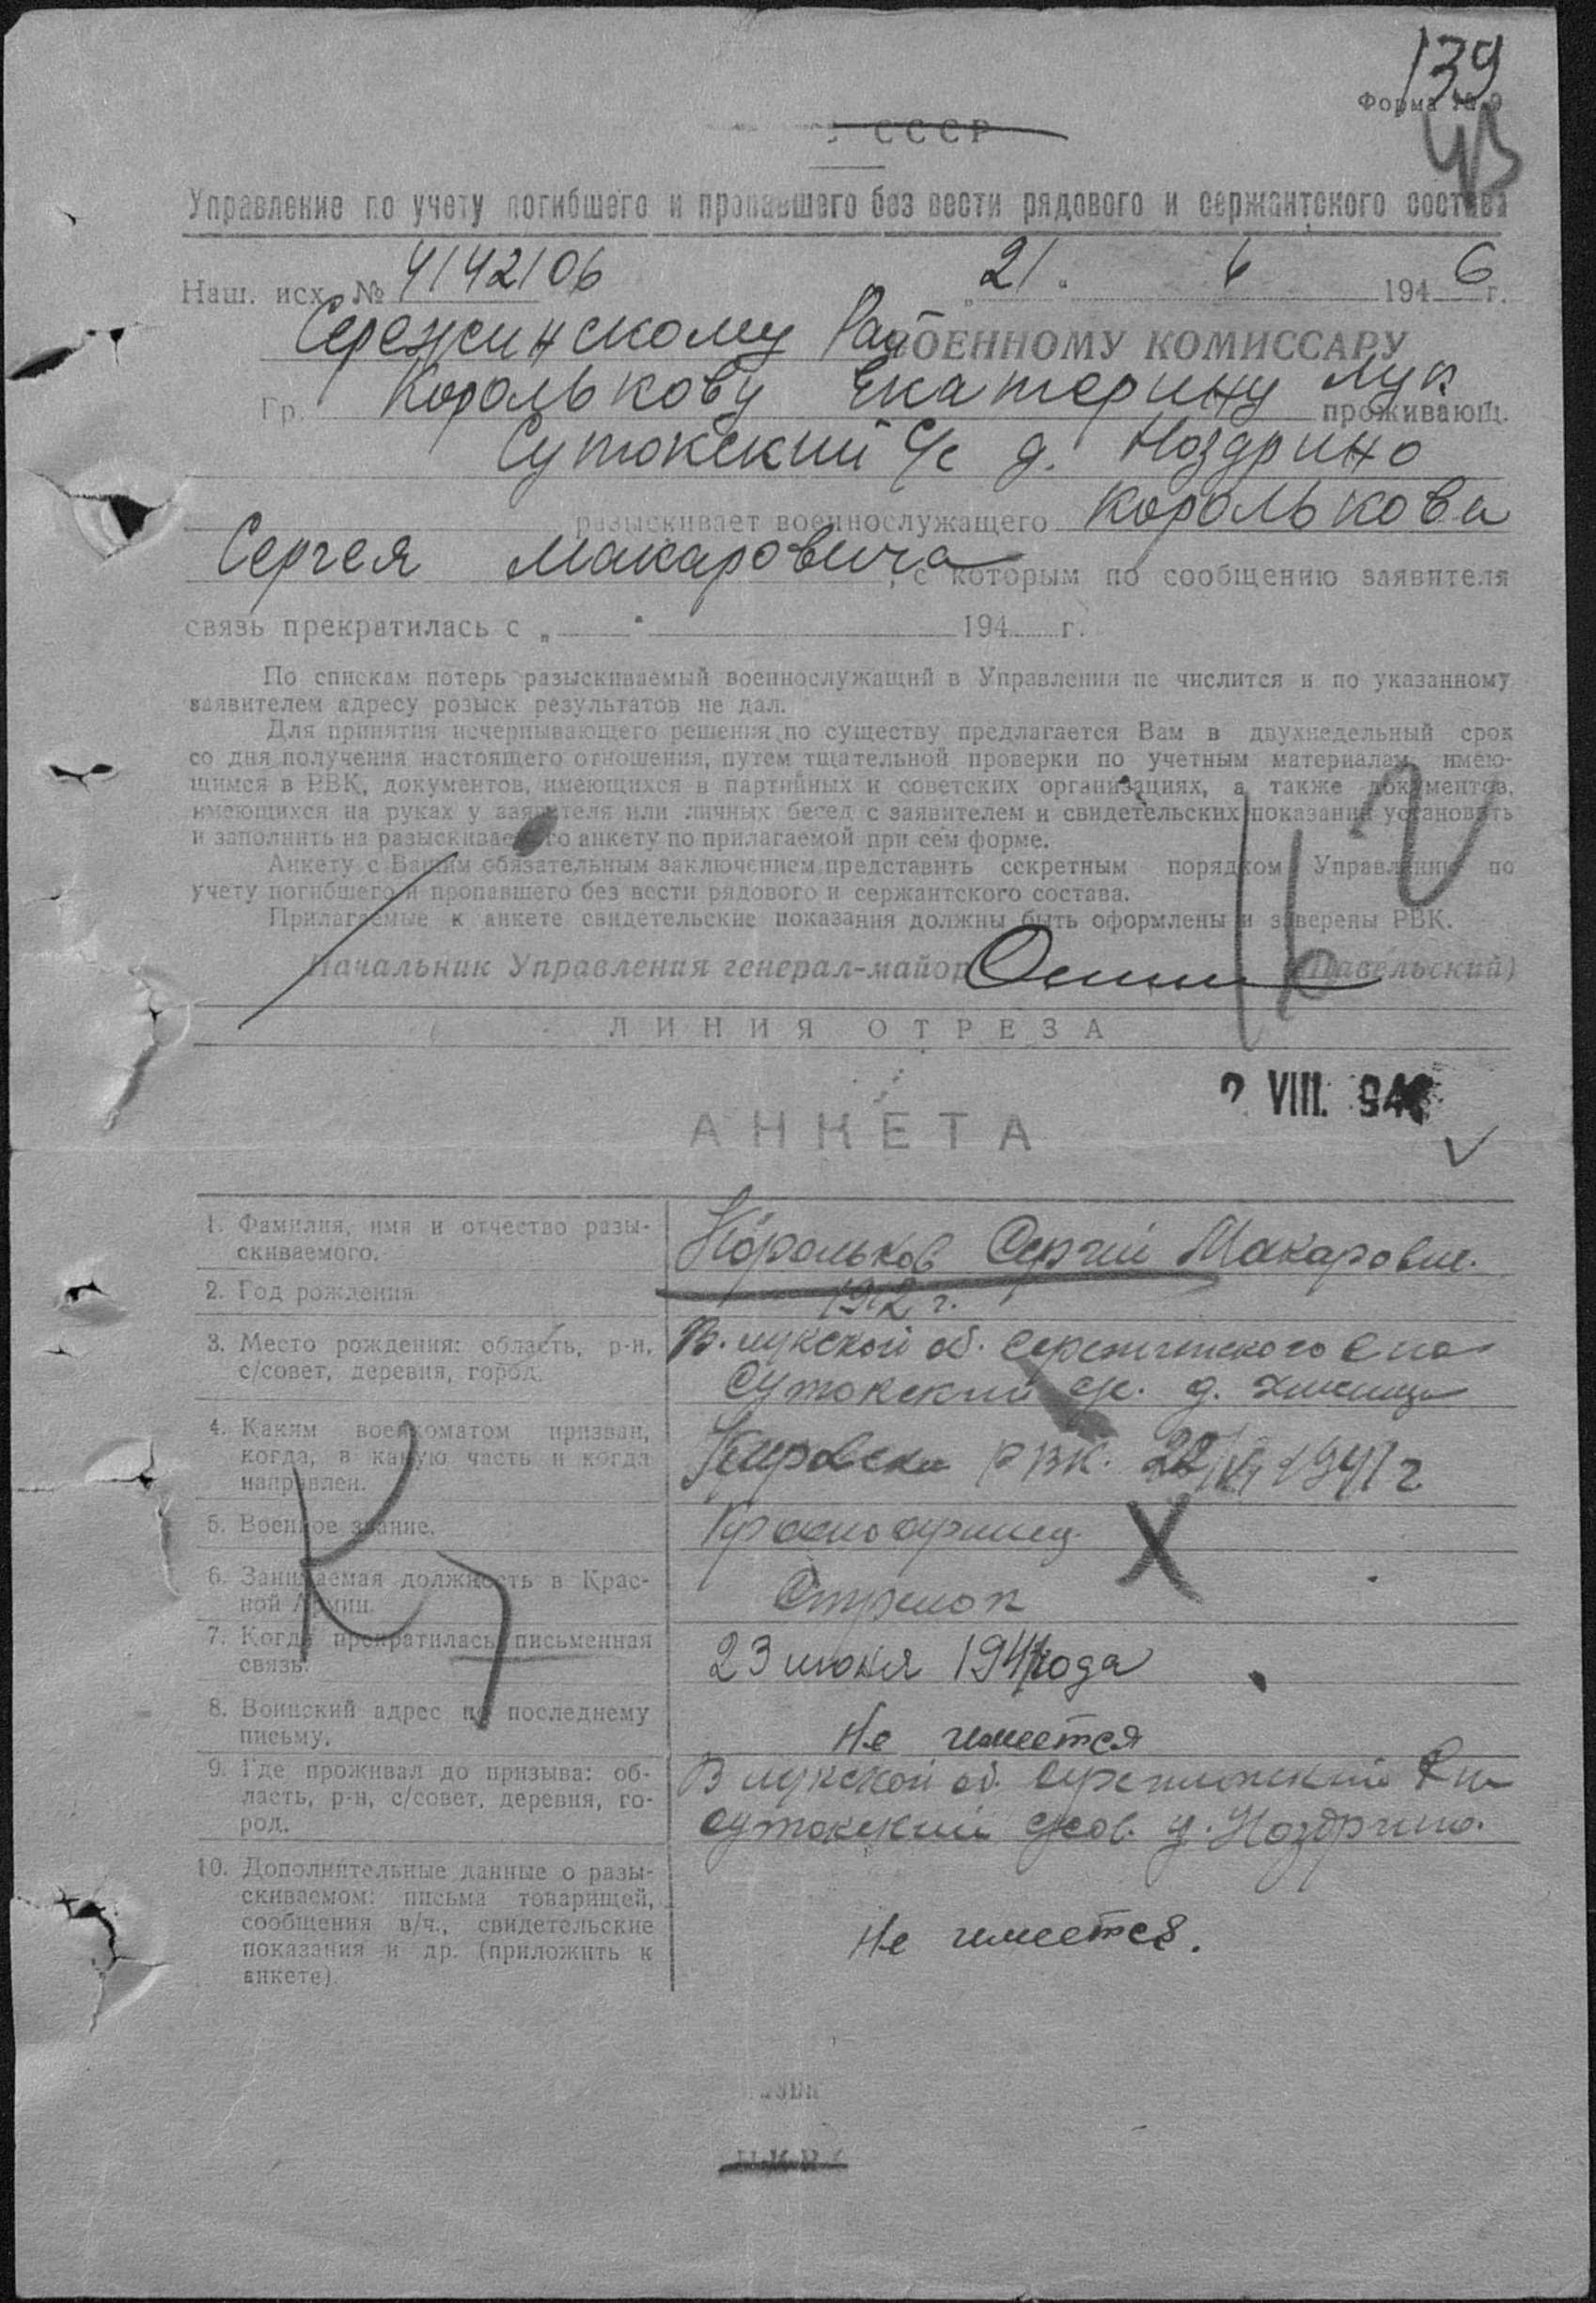 139
Форма № 9
43
СССР
Управление по учету погибшего и пропавшего без вести рядового и сержантского состава
Наш. исх. № 4142106 „21" 6 1946 г.
Сережинскому Рай ВОЕННОМУ КОМИССАРУ
Гр. Королькову Екатерину Лук проживающ.
Сутокский с/с д. Ноздрино
разыскивает военнослужащего Королькова
Сергея Макаровича, с которым по сообщению заявителя
связь прекратилась с „ " 194 г.
По спискам потерь разыскиваемый военнослужащий в Управлении не числится и по указанному
заявителем адресу розыск результатов не дал.
Для принятия исчерпывающего решения по существу предлагается Вам в двухнедельный срок
со дня получения настоящего отношения, путем тщательной проверки по учетным материалам, имею-
щимся в РВК, документов, имеющихся в партийных и советских организациях, а также документов,
имеющихся на руках у заявителя или личных бесед с заявителем и свидетельских показаний установить
и заполнить на разыскиваемого анкету по прилагаемой при сем форме.
Анкету с Вашим обязательным заключением представить секретным порядком Управлению по
учету погибшего и пропавшего без вести рядового и сержантского состава.
Прилагаемые к анкете свидетельские показания должны быть оформлены и заверены РВК.
Начальник Управления генерал-майор (Шавельский)
ЛИНИЯ ОТРЕЗА
2 VIII. 946
АНКЕТА
1. Фамилия, имя и отчество разы-
скиваемого.
Корольков Сергей Макарович.
2. Год рождения
1912 г.
3. Место рождения: область, р-н,
с/совет, деревня, город.
В. лукской об. Сережинского
Сутокский с/с. д.
4. Каким военкоматом призван,
когда, в какую часть и когда
направлен.
Кировски РВК. 22/VI 1941 г
5. Военное звание.
Красноармеец
6. Занимаемая должность в Крас-
ной Армии.
Стрелок
7. Когда прекратилась письменная
связь.
23 июня 1941 года
8. Воинский адрес по последнему
письму.
Не имеется
9. Где проживал до призыва: об-
ласть, р-н, с/совет, деревня, го-
род.
В лукской об. Сережинский
Сутокский с/сов. д. Ноздрино.
10. Дополнительные данные о разы-
скиваемом: письма товарищей,
сообщения в/ч., свидетельские
показания и др. (приложить к
анкете).
Не имеется.